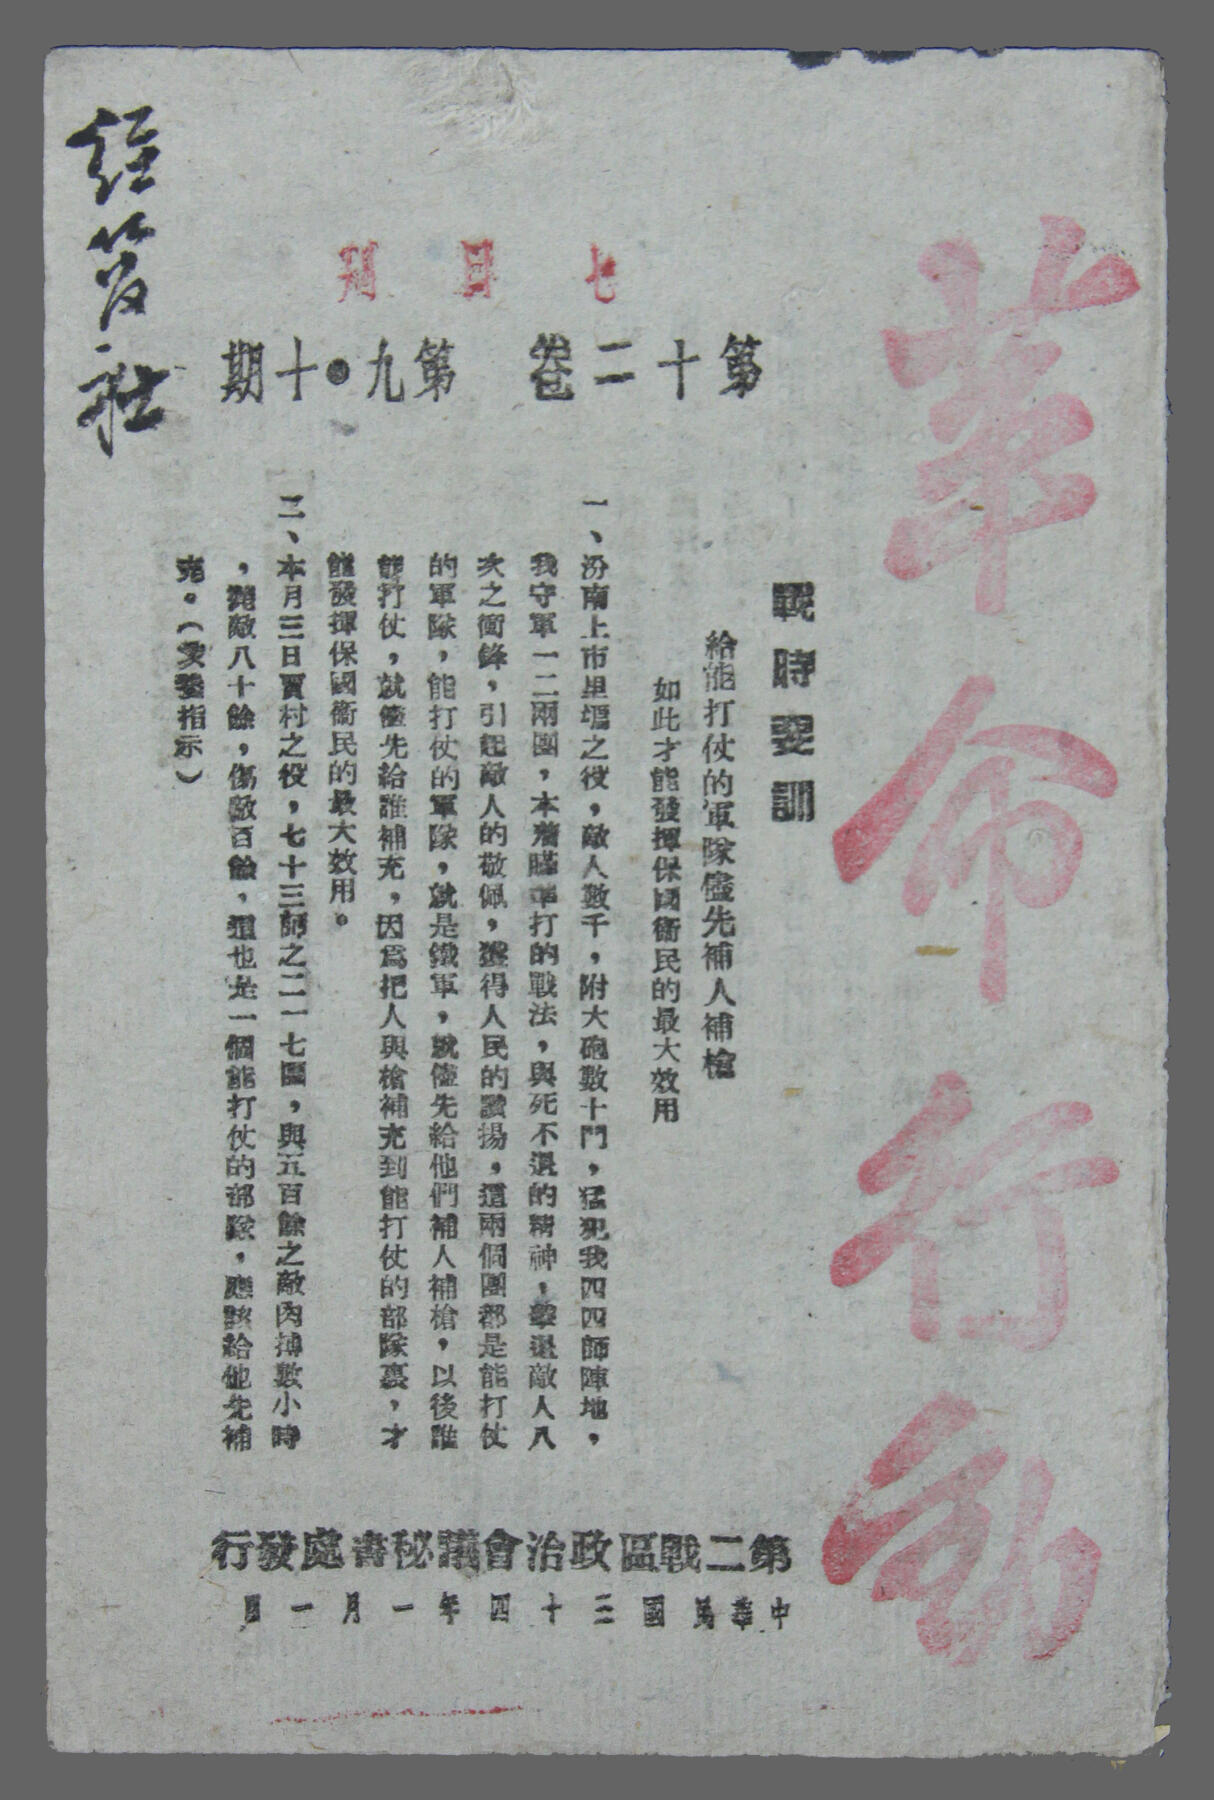 革命行動
七日刊
第十二卷 第九•十期
戰時要訓
給能打仗的軍隊儘先補人補槍
如此才能發揮保國衞民的最大效用
一、汾南上市里堰之役，敵人數千，附大砲數十門，猛犯我四四師陣地，
我守軍一二兩團，本着瞄準打的戰法，與死不退的精神，擊退敵人八
次之衝鋒，引起敵人的敬佩，獲得人民的讚揚，這兩個團都是能打仗
的軍隊，能打仗的軍隊，就是鐵軍，就儘先給他們補人補槍，以後誰
能打仗，就儘先給誰補充，因爲把人與槍補充到能打仗的部隊裏，才
能發揮保國衞民的最大效用。
二、本月三日賈村之役，七十三師之二一七團，與五百餘之敵肉搏數小時
，斃敵八十餘，傷敵百餘，這也是一個能打仗的部隊，應該給他先補
充。（委座指示）
第二戰區政治會議秘書處發行
中華民國三十四年一月一日
社